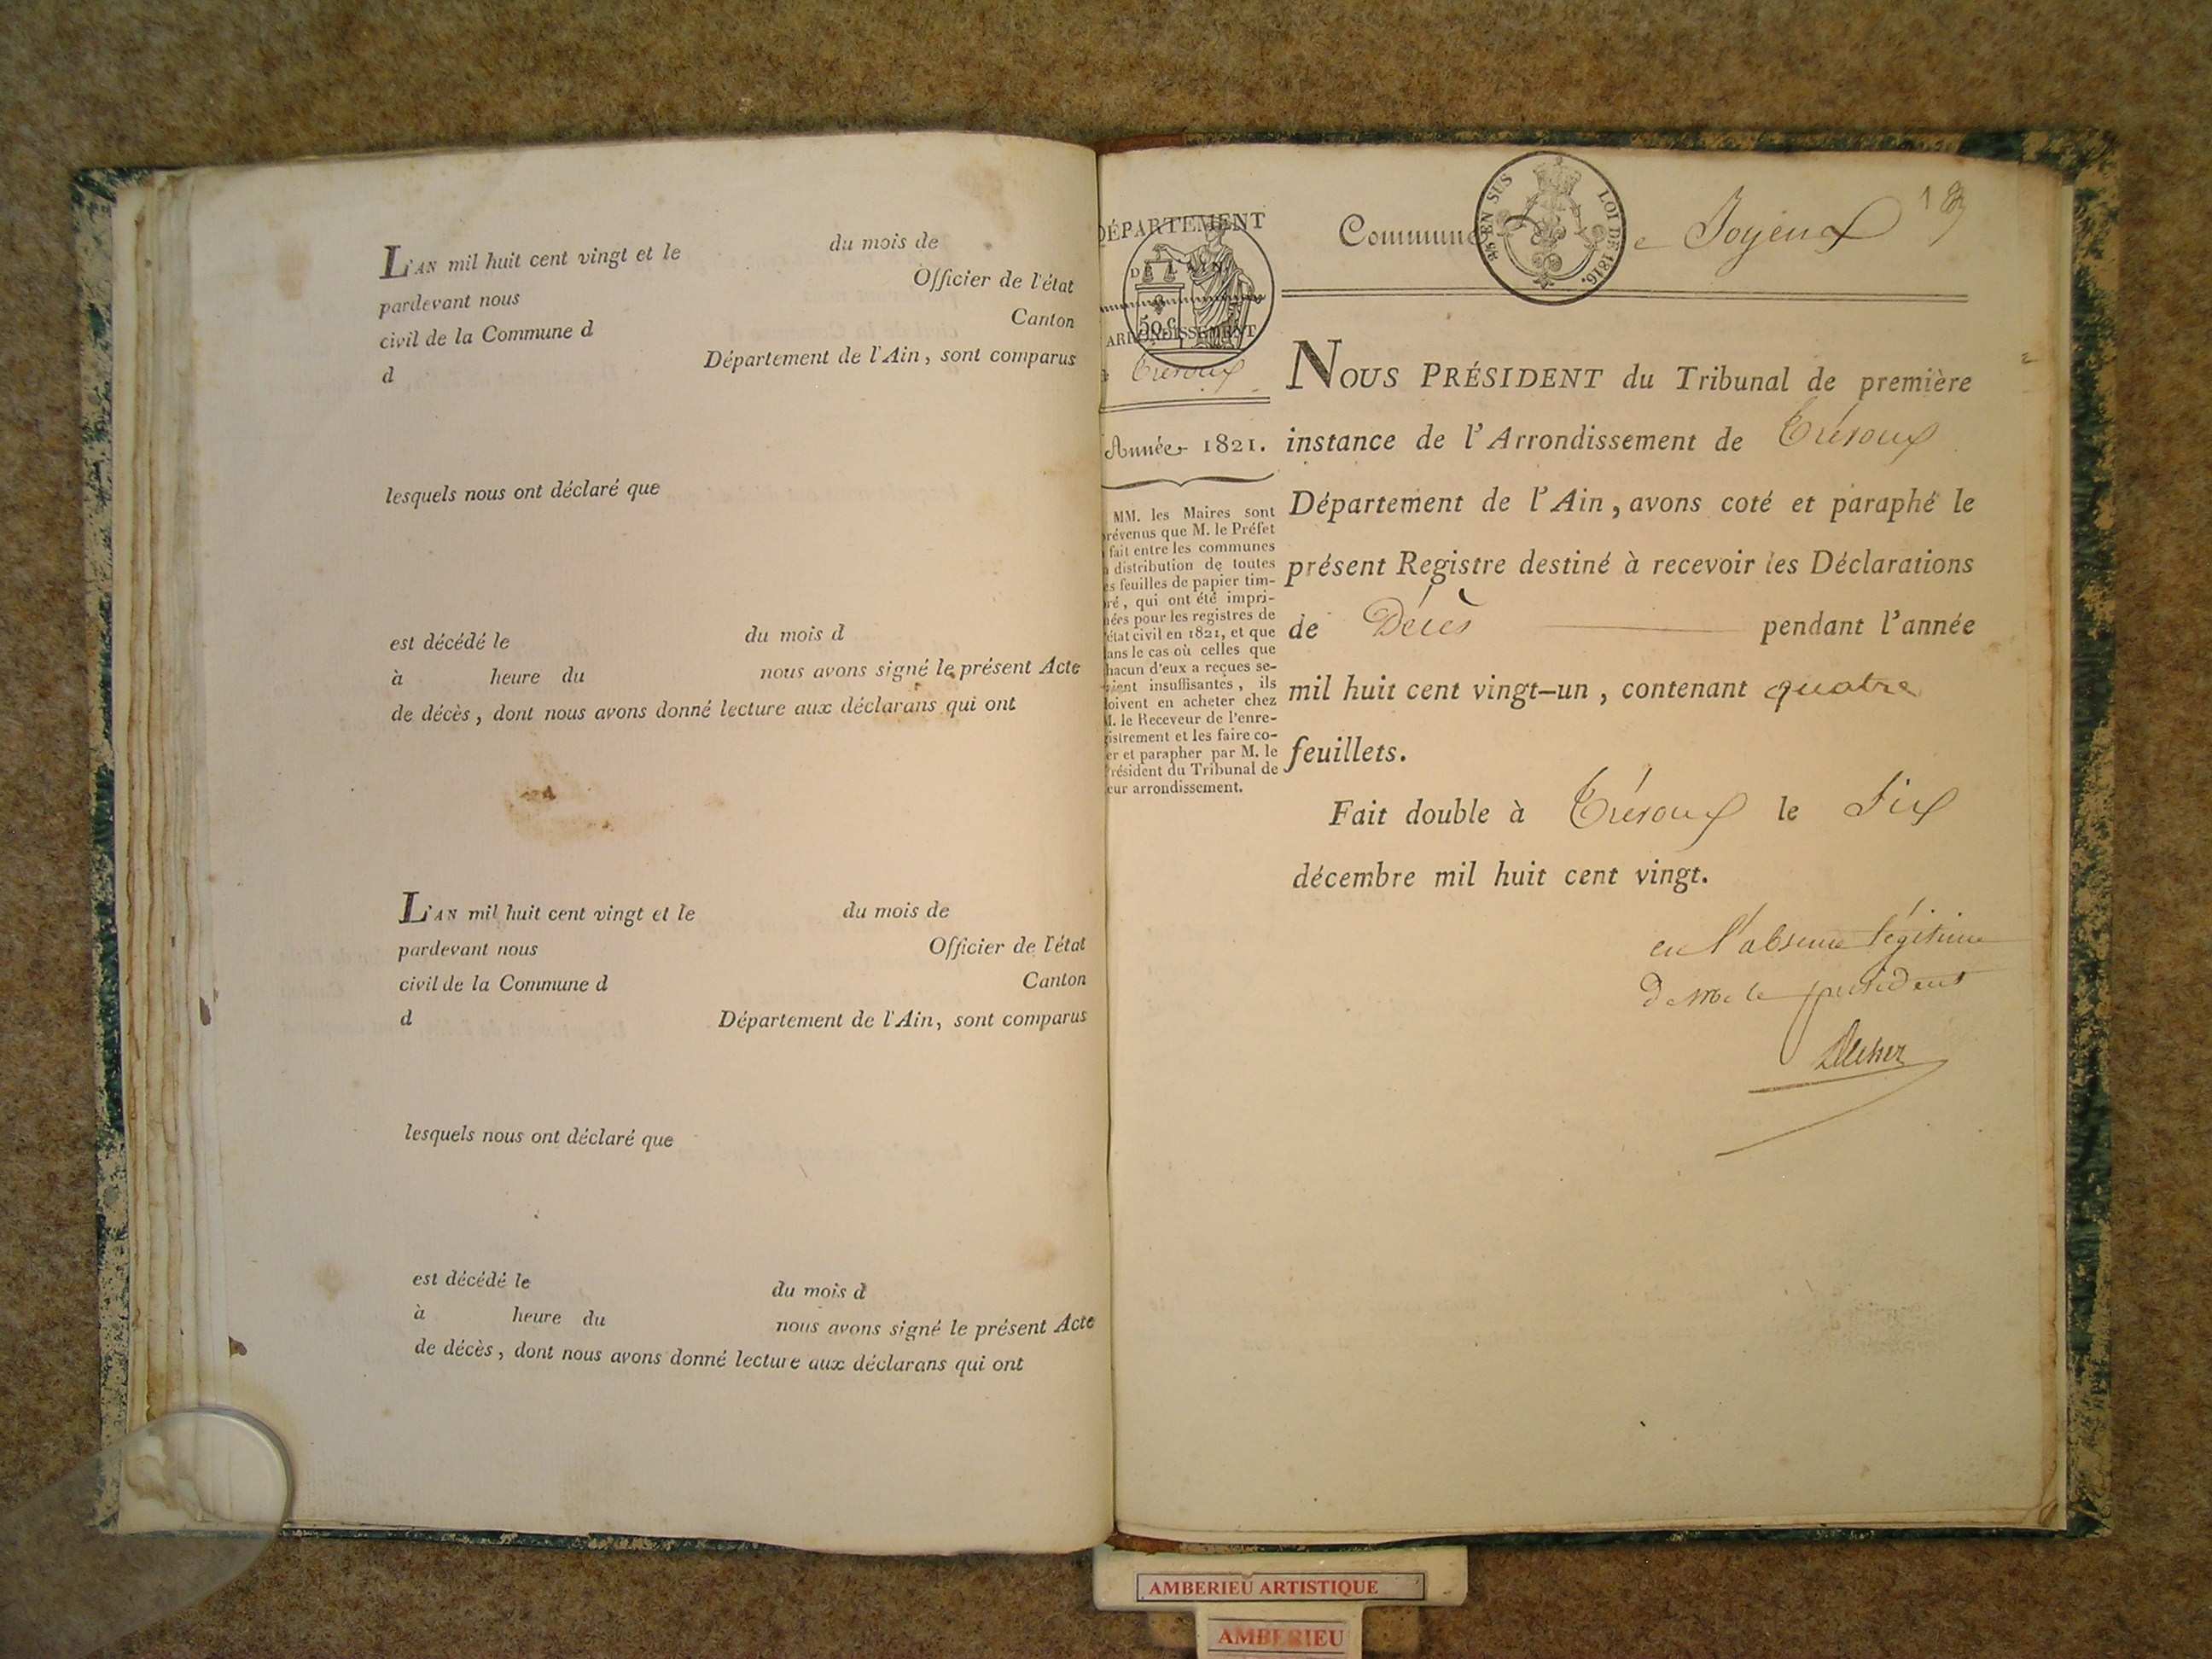 L'AN mil huit cent vingt et le du mois de
pardevant nous Officier de l'état
civil de la Commune d Canton
d Département de l'Ain, sont comparus
lesquels nous ont déclaré que
est décédé le du mois d
à heure du nous avons signé le présent Acte
de décès, dont nous avons donné lecture aux déclarans qui ont
L'AN mil huit cent vingt et le du mois de
pardevant nous Officier de l'état
civil de la Commune d Canton
d Département de l'Ain, sont comparus
lesquels nous ont déclaré que
est décédé le du mois d
à heure du nous avons signé le présent Acte
de décès, dont nous avons donné lecture aux déclarans qui ont
DÉPARTEMENT
DE L'AIN.
50 c.
ARRONDISSEMENT
Trévoux
Année 1821.
MM. les Maires sont
révenus que M. le Préfet
fait entre les communes
distribution de toutes
es feuilles de papier tim-
ré, qui ont été impri-
ées pour les registres de
état civil en 1821, et que
ans le cas où celles que
hacun d'eux a reçues se-
ient insuffisantes, ils
oivent en acheter chez
M. le Receveur de l'enre-
istrement et les faire co-
er et parapher par M. le
Président du Tribunal de
eur arrondissement.
Commune e Joyeux
EN SUS LOI DE 1816.
NOUS PRÉSIDENT du Tribunal de première
instance de l'Arrondissement de Trévoux
Département de l'Ain, avons coté et paraphé le
présent Registre destiné à recevoir les Déclarations
de Décès pendant l'année
mil huit cent vingt-un, contenant quatre
feuillets.
Fait double à Trévoux le Six
décembre mil huit cent vingt.
en l'absence légitime
de Mr le président
AMBERIEU ARTISTIQUE
AMBERIEU